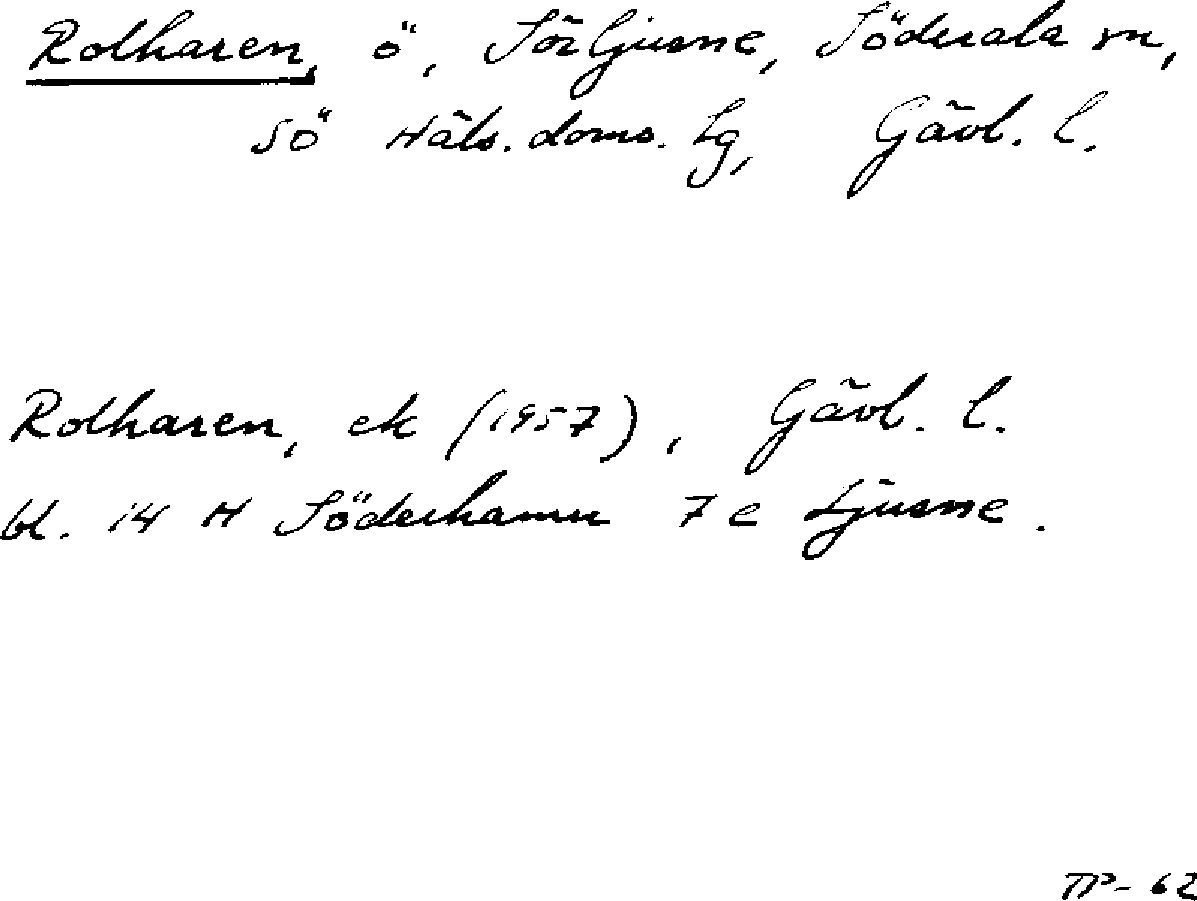 Rotharen, ö, Sörljusne, Söderala sn,
Sö Häls. doms. Lg, Gävl. l.
Rotharen, ek (1957), Gävl. l.
bl. 14 H Söderhamn 7 e Ljusne.
TP-62